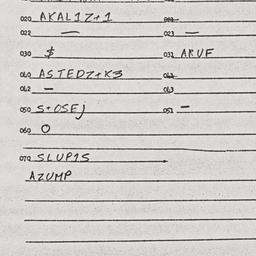 020 AKAL1Z+1
022 — 023 —
030 $ 031 ARUF
060 ASTEDZ+K3
062 — 063
050 S+OSEJ 051 —
060 O
070 SLUP1S
AZUMP